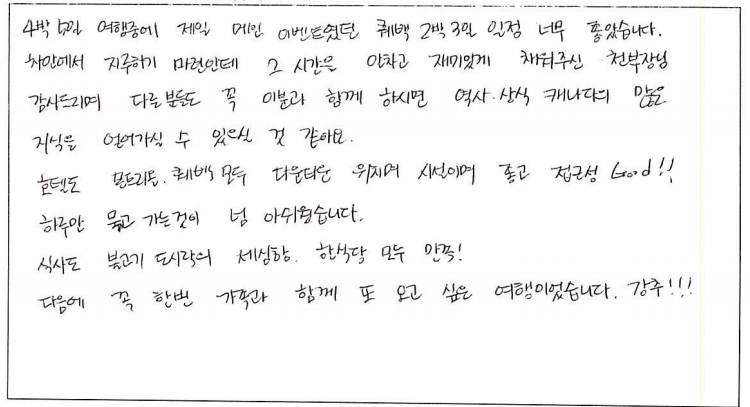 4박 5일 여행중에 제일 메인 이벤트였던 퀘백 2박3일 일정 너무 좋았습니다.
차안에서 지루하기 마련인데 그 시간을 알차고 재미있게 채워주신 천부장님
감사드리며 다른분들도 꼭 이분과 함께 하시면 역사·상식 캐나다의 많은
지식을 얻어가실 수 있으실 것 같아요.
호텔도 몬트리올. 퀘백 모두 다운타운 위치며 시설이며 좋고 접근성 Good!!
하루만 묵고 가는것이 넘 아쉬웠습니다.
식사도 불고기 도시락의 세심함. 한식당 모두 만족!
다음에 꼭 한번 가족과 함께 또 오고 싶은 여행이었습니다. 강추!!!